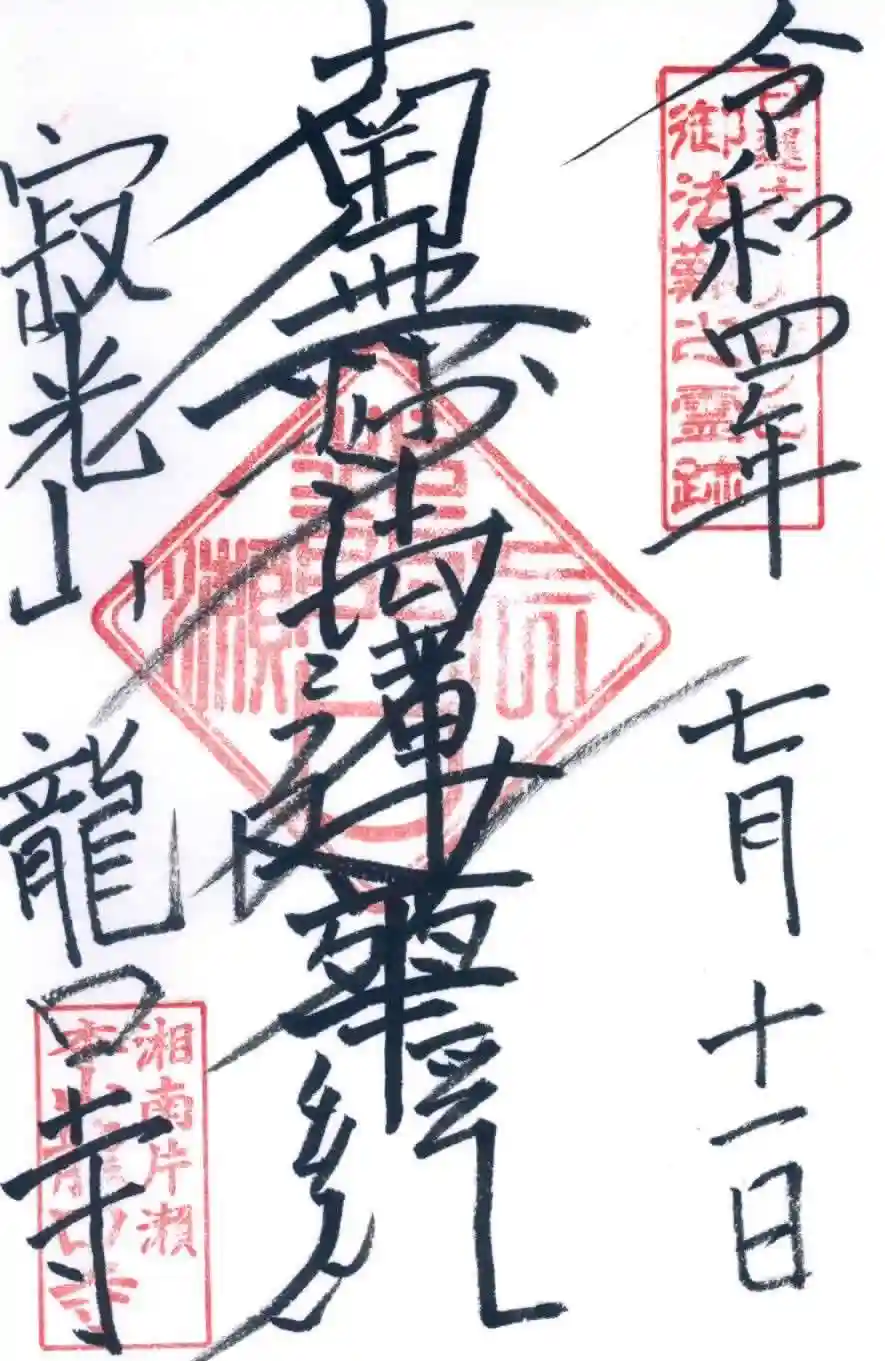 令和四年 七月 十一日
御法難之霊跡
南無妙法蓮華経
寂光山 龍口寺
湘南片瀬
本山龍口寺